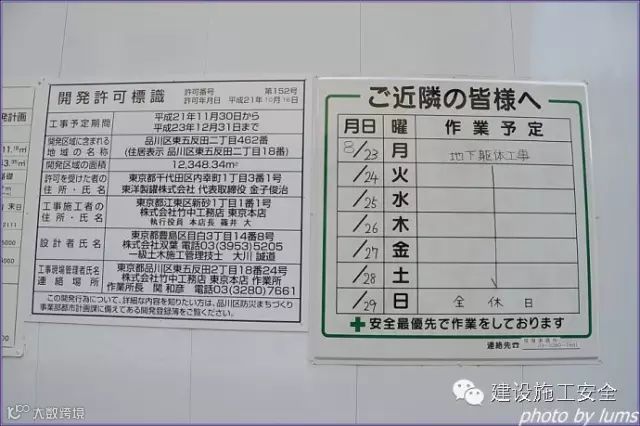 発計画
開発許可標識
許可番号 第152号
許可年月日 平成21年10月16日
工事予定期間
平成21年11月30日から
平成23年12月31日まで
開発区域に含まれる
地域の名称
品川区東五反田二丁目462番
(住居表示 品川区東五反田二丁目18番)
開発区域の面積
12,348.34㎡
許可を受けた者の
住所・氏名
東京都千代田区内幸町1丁目3番1号
東洋製罐株式会社 代表取締役 金子俊治
工事施工者の
住所・氏名
東京都江東区新砂1丁目1番1号
株式会社竹中工務店 東京本店
執行役員 本店長 篠井 大
設計者氏名
東京都豊島区目白3丁目14番8号
株式会社双葉 電話03(3953)5205
一級土木施工管理技士 大川 誠道
工事現場管理者氏名
連絡場所
東京都品川区東五反田2丁目18番24号
株式会社竹中工務店 東京本店 作業所
作業所長 関 和彦 電話03(3280)7661
この開発行為について、詳細な内容を知りたい方は、品川区防災まちづくり
事業部都市計画課に備えてある開発登録簿をご覧ください。
ご近隣の皆様へ
月日 曜 作業予定
8/23 月 地下躯体工事
/24 火
/25 水
/26 木
/27 金
/28 土
/29 日 全休日
安全最優先で作業をしております
連絡先☎
建设施工安全
大数跨境
photo by lums